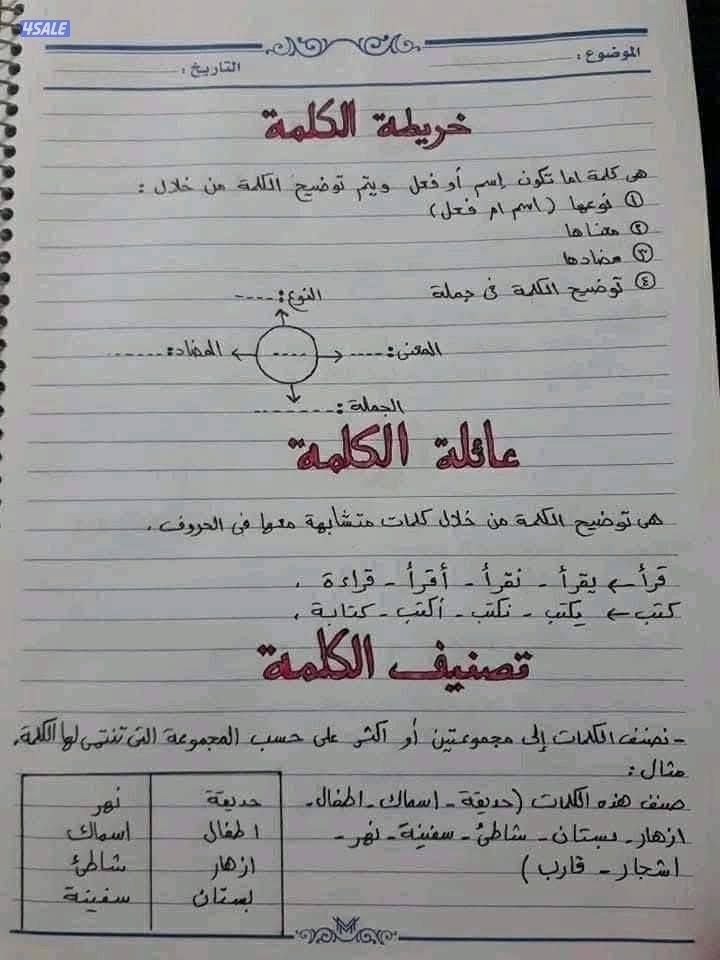 4SALE
الموضوع :
التاريخ :
خريطة الكلمة
هى كلمة اما تكون إسم أو فعل ويتم توضيح الكلمة من خلال :
① نوعها (اسم ام فعل)
② معناها
③ مضادها
④ توضيح الكلمة فى جملة
النوع :----
المعنى :----
----
المضاد :------
الجملة :--------
عائلة الكلمة
هى توضيح الكلمة من خلال كلمات متشابهة معها فى الحروف .
قرأ ← يقرأ - نقرأ - أقرأ - قراءة .
كتب ← يكتب - نكتب - أكتب - كتابة .
تصنيف الكلمة
- نصنف الكلمات إلى مجموعتين أو أكثر على حسب المجموعة التى تنتمى لها الكلمة.
مثال :
صنف هذه الكلمات (حديقة - اسماك - اطفال -
ازهار - بستان - شاطئ - سفينة - نهر -
اشجار - قارب )
حديقة نهر
اطفال اسماك
ازهار شاطئ
بستان سفينة